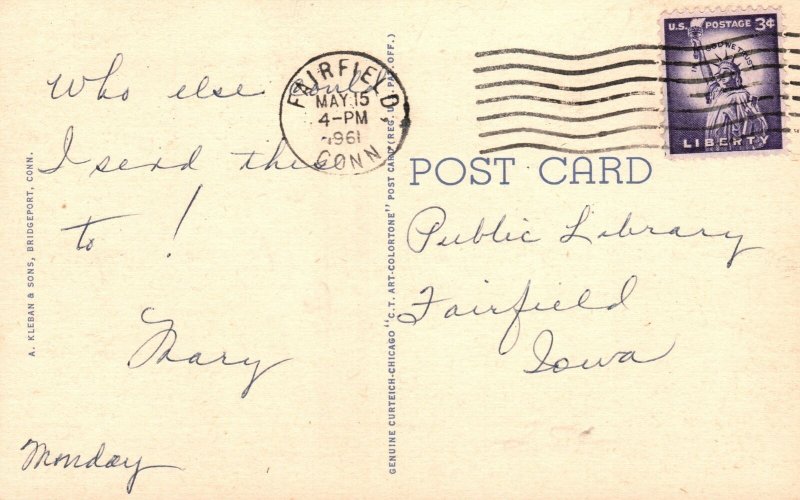 Who else could
I send this
to !
Mary
Monday
A. KLEBAN & SONS, BRIDGEPORT, CONN.
FAIRFIELD,
MAY 15
4-PM
1961
CONN.
GENUINE CURTEICH-CHICAGO "C.T. ART-COLORTONE" POST CARD (REG. U.S. PAT. OFF.)
U.S. POSTAGE 3¢
IN GOD WE TRUST
LIBERTY
POST CARD
Public Library
Fairfield
Iowa